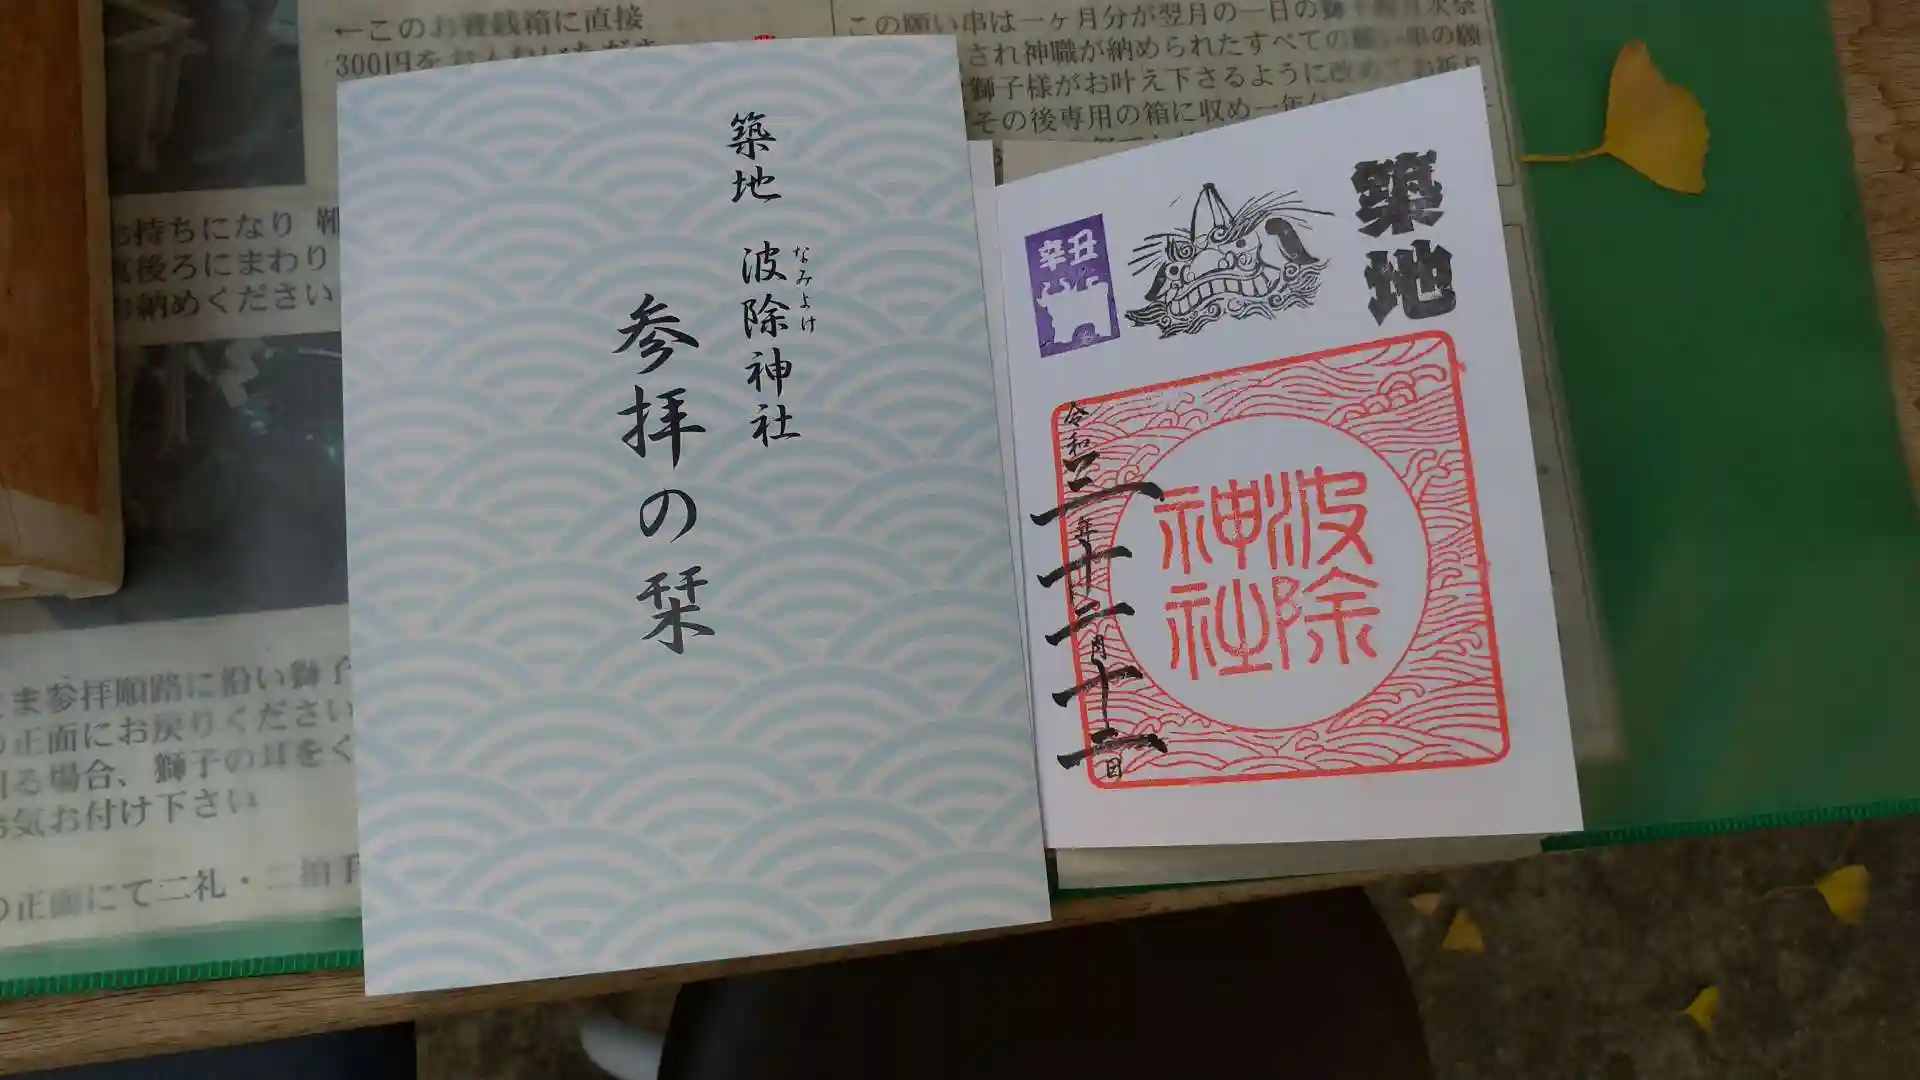 ←このお賽銭箱に直接
300円を
この願い串は一ヶ月分が翌月の一日の
され神職が納められたすべての願い串の願
獅子様がお叶え下さるように改めてお祈り
その後専用の箱に収め一年
お持ちになり
後ろにまわり
納めください
ま参拝順路に沿い獅子
正面にお戻りください
場合、獅子の耳をく
お気お付け下さい
の正面にて二礼・二拍手
築地 波除神社
なみよけ
参拝の栞
築地
辛丑
波除
神社
令和三年十二月十二日